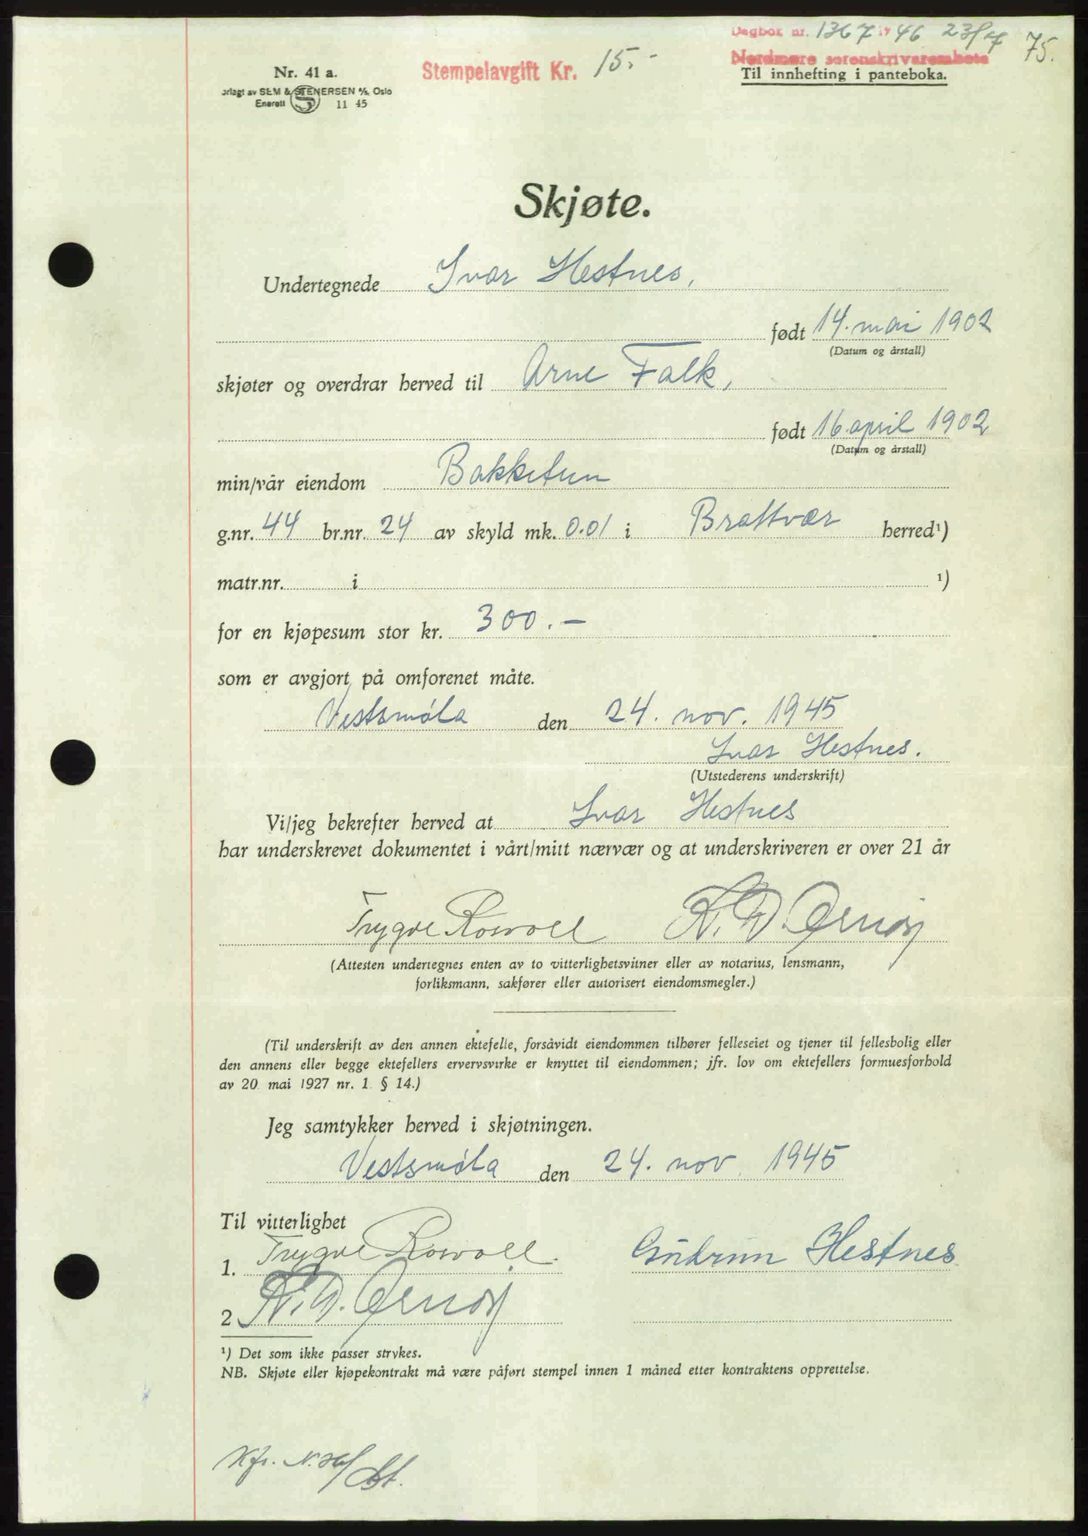 Dagbok nr. 1367 19 46 23/7 75.
Nr. 41 a. Stempelavgift Kr. 15.- Nordmøre sorenskriverembete
orlagt av SEM & STENERSEN A/S, Oslo Til innhefting i panteboka.
Enerett S 11 45
Skjøte.
Undertegnede Ivar Hestnes,
født 14. mai 1902
(Datum og årstall)
skjøter og overdrar herved til Arne Falk,
født 16 april 1902
(Datum og årstall)
min/vår eiendom Bakketun
g.nr. 44 br.nr. 24 av skyld mk. 0.01 i Brattvær herred¹)
matr.nr. i ¹)
for en kjøpesum stor kr. 300.-
som er avgjort på omforenet måte.
Vestsmøla den 24. nov. 1945
Ivar Hestnes.
(Utstederens underskrift)
Vi/jeg bekrefter herved at Ivar Hestnes
har underskrevet dokumentet i vårt/mitt nærvær og at underskriveren er over 21 år
Trygve Rowoll
(Attesten undertegnes enten av to vitterlighetsvitner eller av notarius, lensmann,
forliksmann, sakfører eller autorisert eiendomsmegler.)
(Til underskrift av den annen ektefelle, forsåvidt eiendommen tilhører felleseiet og tjener til fellesbolig eller
den annens eller begge ektefellers ervervsvirke er knyttet til eiendommen; jfr. lov om ektefellers formuesforhold
av 20 mai 1927 nr. 1 § 14.)
Jeg samtykker herved i skjøtningen.
Vestsmøla den 24. nov 1945
Til vitterlighet
1. Trygve Rowoll. Gudrun Hestnes
2
¹) Det som ikke passer strykes.
NB. Skjøte eller kjøpekontrakt må være påført stempel innen 1 måned etter kontraktens opprettelse.